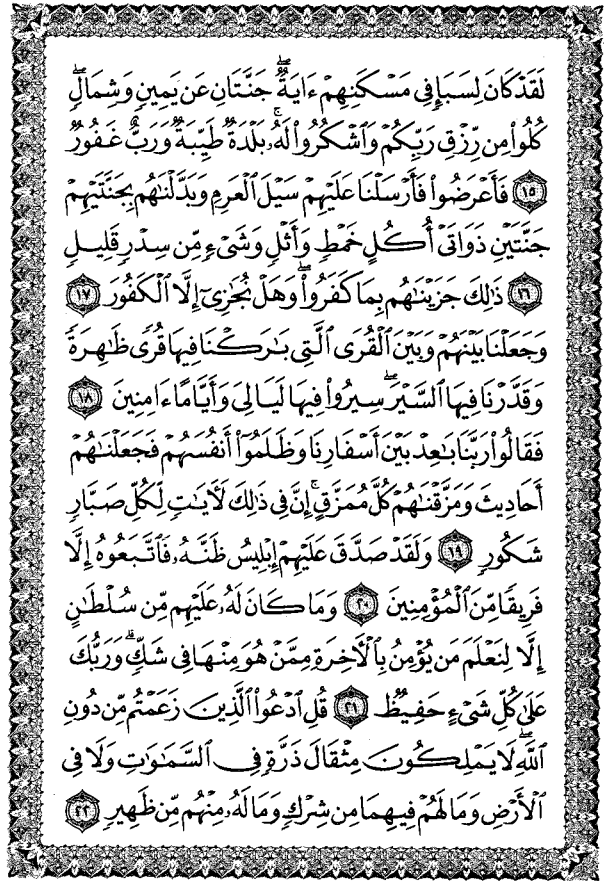 لَقَدْ كَانَ لِسَبَإٍ فِي مَسْكَنِهِمْ ءَايَةٌ ۖ جَنَّتَانِ عَن يَمِينٍ وَشِمَالٍ ۖ
كُلُوا۟ مِن رِّزْقِ رَبِّكُمْ وَٱشْكُرُوا۟ لَهُۥ ۚ بَلْدَةٌ طَيِّبَةٌ وَرَبٌّ غَفُورٌ
١٥ فَأَعْرَضُوا۟ فَأَرْسَلْنَا عَلَيْهِمْ سَيْلَ ٱلْعَرِمِ وَبَدَّلْنَٰهُم بِجَنَّتَيْهِمْ
جَنَّتَيْنِ ذَوَاتَىْ أُكُلٍ خَمْطٍ وَأَثْلٍ وَشَىْءٍ مِّن سِدْرٍ قَلِيلٍ
١٦ ذَٰلِكَ جَزَيْنَٰهُم بِمَا كَفَرُوا۟ ۖ وَهَلْ نُجَٰزِىٓ إِلَّا ٱلْكَفُورَ ١٧
وَجَعَلْنَا بَيْنَهُمْ وَبَيْنَ ٱلْقُرَى ٱلَّتِى بَٰرَكْنَا فِيهَا قُرًى ظَٰهِرَةً
وَقَدَّرْنَا فِيهَا ٱلسَّيْرَ ۖ سِيرُوا۟ فِيهَا لَيَالِىَ وَأَيَّامًا ءَامِنِينَ ١٨
فَقَالُوا۟ رَبَّنَا بَٰعِدْ بَيْنَ أَسْفَارِنَا وَظَلَمُوٓا۟ أَنفُسَهُمْ فَجَعَلْنَٰهُمْ
أَحَادِيثَ وَمَزَّقْنَٰهُمْ كُلَّ مُمَزَّقٍ ۚ إِنَّ فِى ذَٰلِكَ لَءَايَٰتٍ لِّكُلِّ صَبَّارٍ
شَكُورٍ ١٩ وَلَقَدْ صَدَّقَ عَلَيْهِمْ إِبْلِيسُ ظَنَّهُۥ فَٱتَّبَعُوهُ إِلَّا
فَرِيقًا مِّنَ ٱلْمُؤْمِنِينَ ٢٠ وَمَا كَانَ لَهُۥ عَلَيْهِم مِّن سُلْطَٰنٍ
إِلَّا لِنَعْلَمَ مَن يُؤْمِنُ بِٱلْءَاخِرَةِ مِمَّنْ هُوَ مِنْهَا فِى شَكٍّ ۗ وَرَبُّكَ
عَلَىٰ كُلِّ شَىْءٍ حَفِيظٌ ٢١ قُلِ ٱدْعُوا۟ ٱلَّذِينَ زَعَمْتُم مِّن دُونِ
ٱللَّهِ ۖ لَا يَمْلِكُونَ مِثْقَالَ ذَرَّةٍ فِى ٱلسَّمَٰوَٰتِ وَلَا فِى
ٱلْأَرْضِ وَمَا لَهُمْ فِيهِمَا مِن شِرْكٍ وَمَا لَهُۥ مِنْهُم مِّن ظَهِيرٍ ٢٢